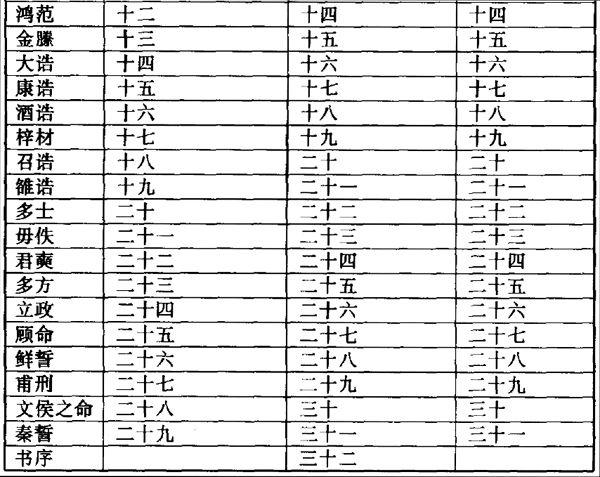 鸿范 十二 十四 十四
金縢 十三 十五 十五
大诰 十四 十六 十六
康诰 十五 十七 十七
酒诰 十六 十八 十八
梓材 十七 十九 十九
召诰 十八 二十 二十
雒诰 十九 二十一 二十一
多士 二十 二十二 二十二
毋佚 二十一 二十三 二十三
君奭 二十二 二十四 二十四
多方 二十三 二十五 二十五
立政 二十四 二十六 二十六
顾命 二十五 二十七 二十七
鲜誓 二十六 二十八 二十八
甫刑 二十七 二十九 二十九
文侯之命 二十八 三十 三十
秦誓 二十九 三十一 三十一
书序 三十二